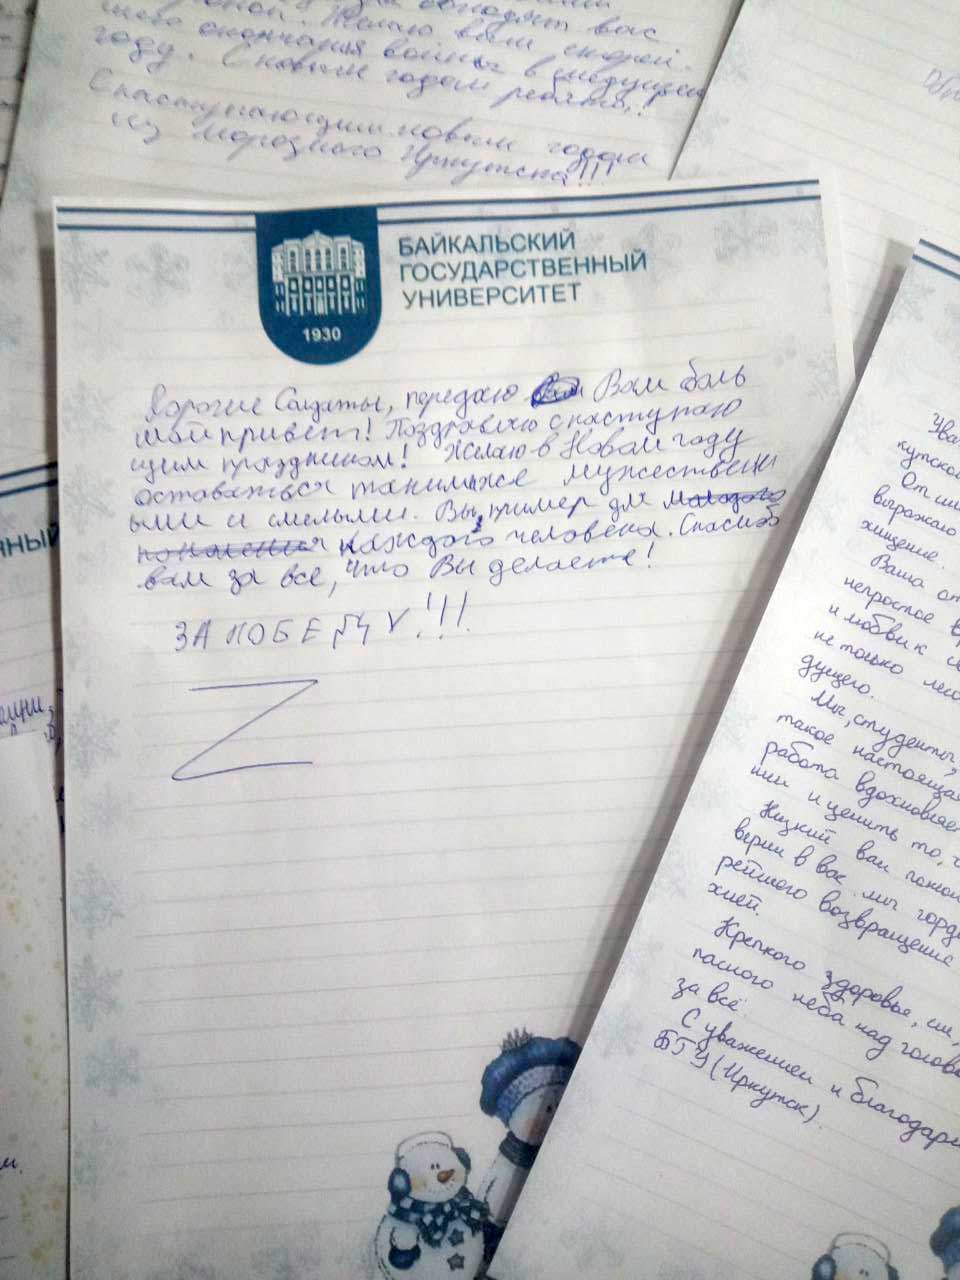 обходят вас
Желаю вам скорей-
шего окончания войны в следующем
году. С новым годом ребята!
С наступающим новым годом
из морозного Иркутска!!!
БАЙКАЛЬСКИЙ
ГОСУДАРСТВЕННЫЙ
УНИВЕРСИТЕТ
1930
Дорогие Солдаты, передаю Вам боль
шой привет! Поздравляю с наступаю
щим праздником! Желаю в Новом году
оставаться такими же мужественн
ыми и смелыми. Вы, пример для молодого
поколения каждого человека. Спасибо
вам за все, что Вы делаете!
ЗА ПОБЕДУ!!!
Z
кутской
От им
выражаю
хищение.
Ваша от
непростое в
и любви к с
не только лес
дущего.
Мы, студенты,
такое настоящая
работа вдохновляет
нии и ценить то, ч
Низкий вам поклон
верим в вас. Мы горд
рейшего возвращение
хией.
Крепкого здоровья, си
пасного неба над голов
за всё.
С уважением и благодар
БГУ (Иркутск).